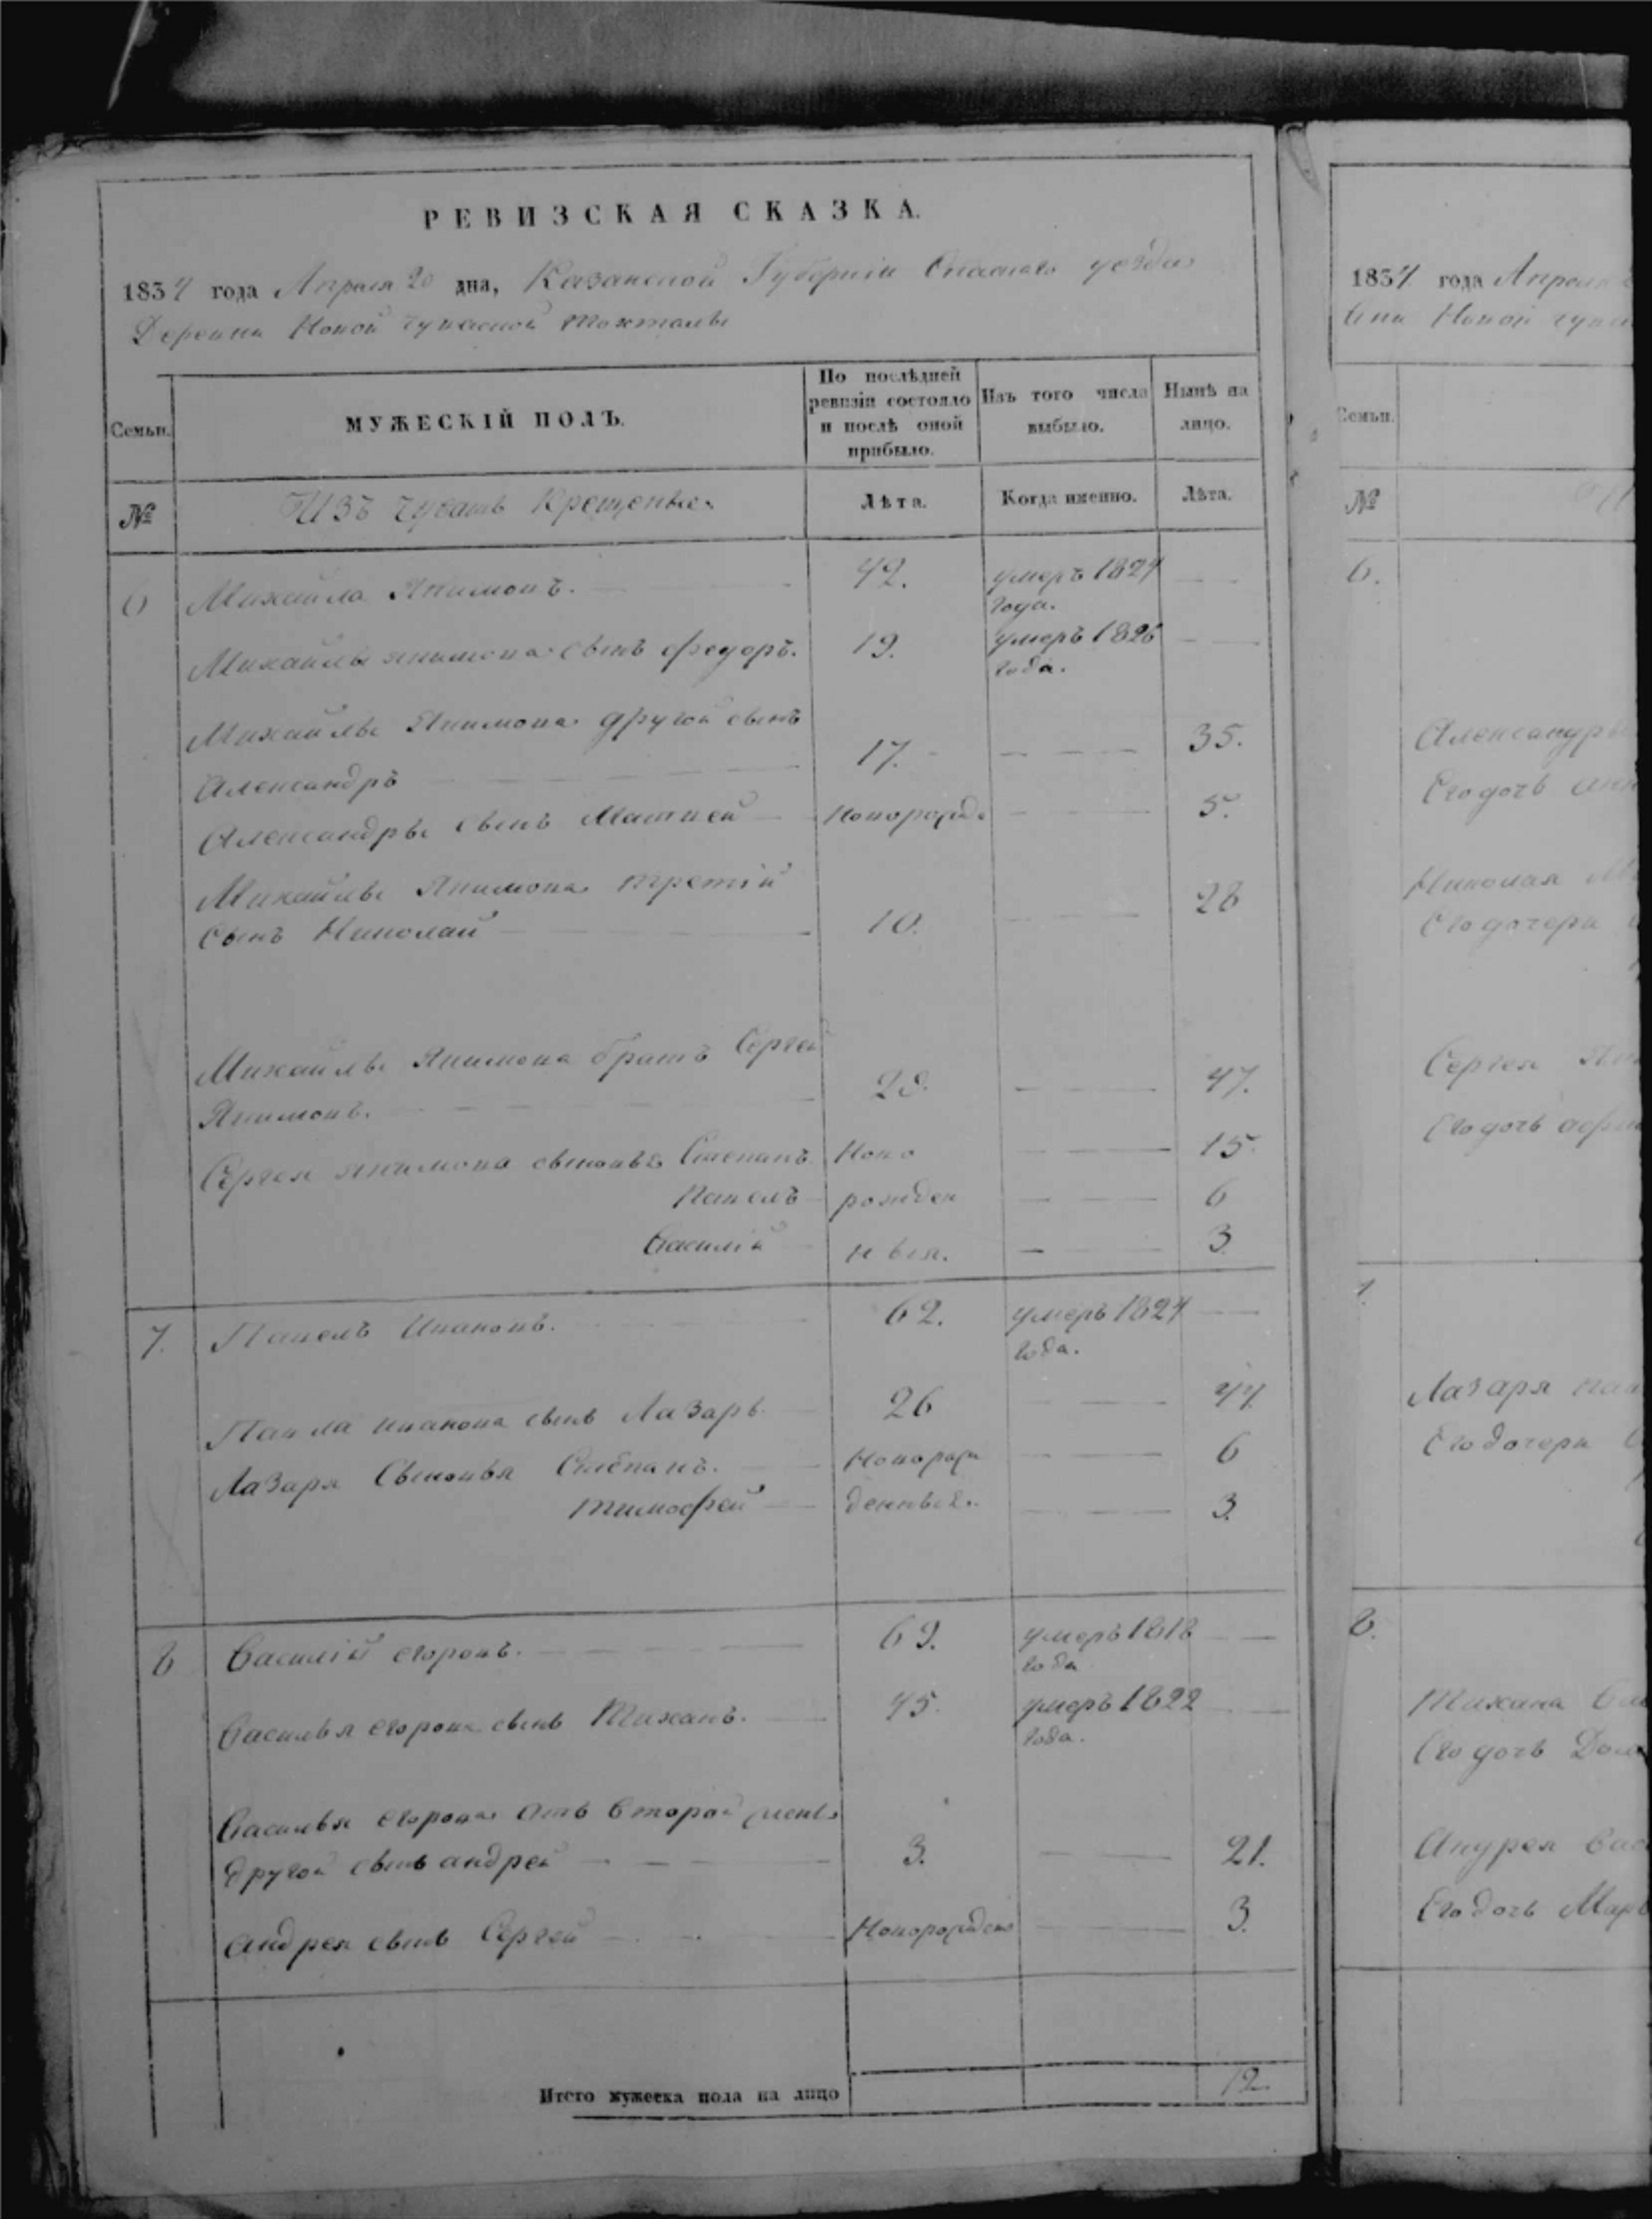 РЕВИЗСКАЯ СКАЗКА.
1834 года Апреля 20 дна, Казанской Губернiи Спаского уезда
Деревни Новой чувашской Тохталы
Семьи.
МУЖЕСКІЙ ПОЛЪ.
По послѣдней ревизіи состояло и послѣ оной прибыло.
Изъ того числа выбыло.
Нынѣ на лицо.
№
Изъ чувашъ Крещеные
Лѣта.
Когда именно.
Лѣта.
6 Михайла Якимовъ. 42. умеръ 1824
года.
Михайлы якимова сынъ федоръ. 19. умеръ 1826
года.
Михайлы Якимова другой сынъ
Александръ 17. 35.
Александры сынъ Матвей Новорожд 5.
Михайлы Якимова третій
сынъ Николай 10. 28
Михайлы Якимова братъ Сергей
Якимовъ. 29. 47.
Сергея якимова сыновья Степанъ Ново 15.
Павелъ рожден 6
Василій ныя. 3.
7. Павелъ Ивановъ. 62. умеръ 1824
года.
Павла иванова сынъ Лазарь 26 44
Лазаря Сыновья Степанъ. Новорож 6
тимофей денные. 3.
8 Василій егоровъ. 69. умеръ 1818
года
Василья егорова сынъ Михаилъ. 45. умеръ 1822
года.
Василья егорова отъ второй жены
другой сынъ андрей 3. 21.
андрея сынъ Сергей Новорожден 3.
Итого мужеска пола на лицо 12.
1834 года Апреля
вни Новой чува
Семьи.
№
6.
Александры
Его дочь анн
Николая М
Его дочери
Сергея Яки
Его дочь
7.
Лазаря пав
Его дочери
8.
Его дочь
Андрея Вас
Его дочь Мар